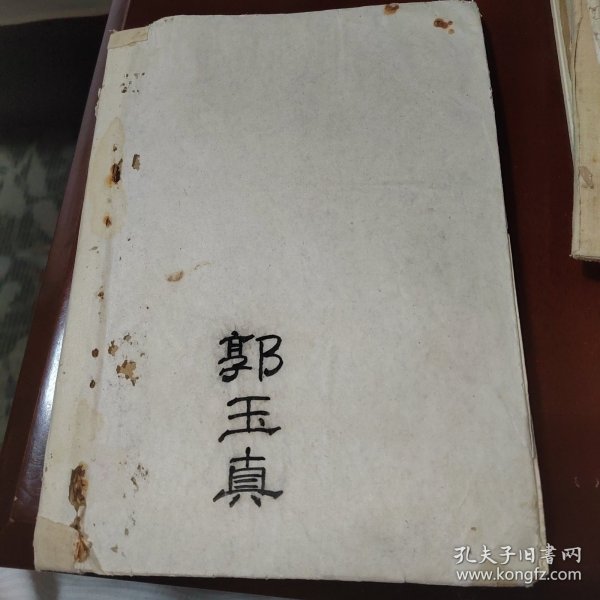 郭玉真
孔夫子旧書网
www.kongfz.com